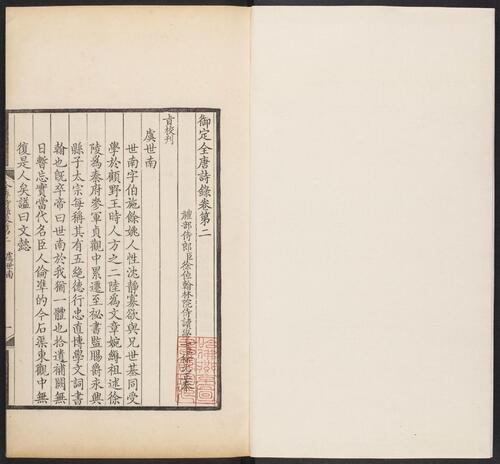 御定全唐詩錄卷第二
禮部侍郎臣徐倬翰林院侍讀學
奉
旨校刊
虞世南
世南字伯施餘姚人性沈靜寡欲與兄世基同受
學於顧野王時人方之二陸為文章婉縟祖述徐
陵為秦府參軍貞觀中累遷至祕書監賜爵永興
縣子太宗每稱其有五絶德行忠直博學文詞書
翰也旣卒帝曰世南於我猶一體也拾遺補闕無
日暫忘實當代名臣人倫凖的今石渠東觀中無
復是人矣諡曰文懿
虞世南
一